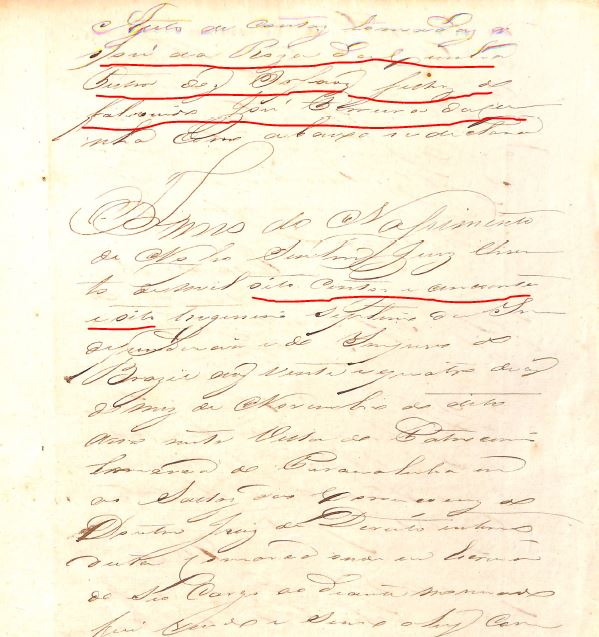 Auto de contas tomadas a
José da
Tutor dos Orfãos filhos do
falecido José
nha Como abaixo se declara
Anno do Nascimento
de Nosso Senhor Jesus Chris
to de mil oito Centos e cincoenta
e oito trigesimo septimo da In
dependencia e do Imperio do
Brazil aos vinte e quatro dias
do mez de Novembro do dito
anno nesta Villa do Patrocinio
Comarca do Paranahiba em
Doutor Juiz de Direito interino
desta Comarca onde eu Escrivão
de seo Cargo ao diante nomeado
fui vindo e sendo ahy Com